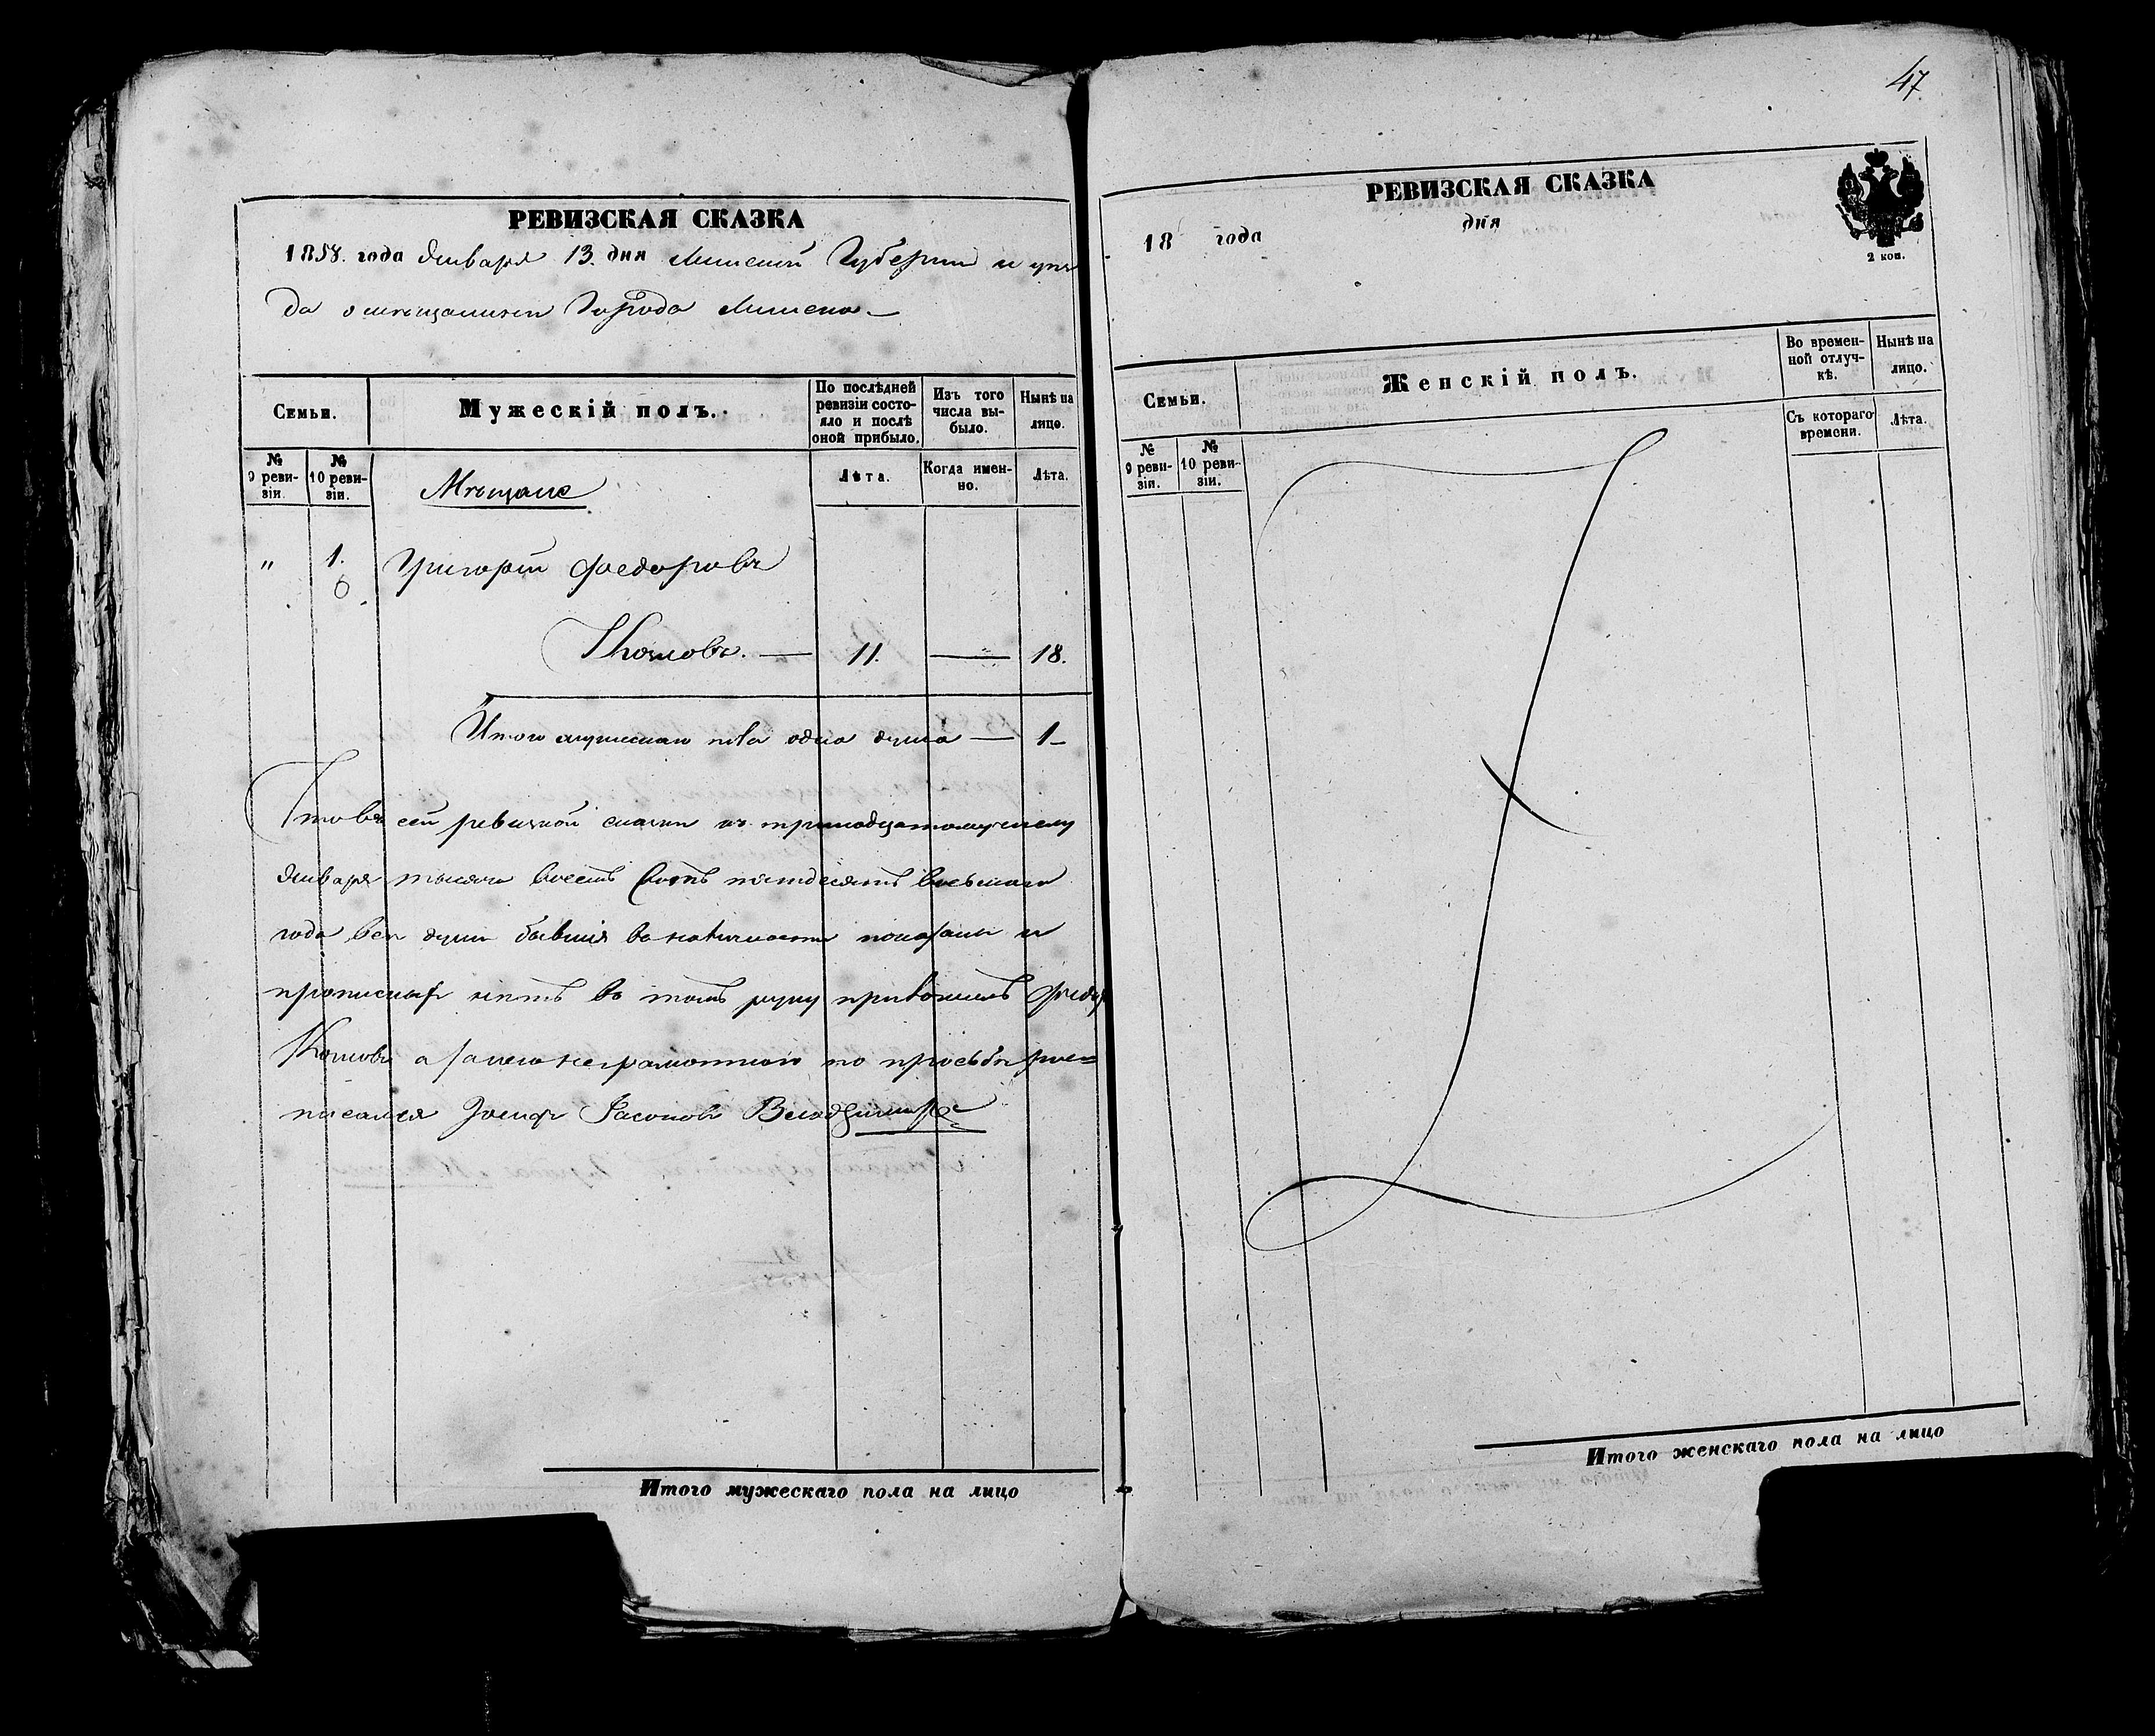 РЕВИЗСКАЯ СКАЗКА
1858. года Января 13. дня Минской Губернии и уѣз
да о мѣщанинѣ Города Минска
Семьи.
Мужескій полъ.
По послѣдней ревизіи состояло и послѣ оной прибыло.
Изъ того числа выбыло.
Нынѣ на лицо.
№ 9 ревизіи.
№ 10 ревизіи.
Лѣта.
Когда именно.
Лѣта.
Мѣщане
" 1. Григорій Федоровъ
11. 18.
Итого мужескаго пола одна душа — 1
сей ревизкой сказки къ тринадцатому числу
Января тысяча восемь сотъ пятдесятъ восьмаго
года всѣ души бывшія въ наличности показаны и
прописныхъ нѣтъ въ томъ руку приложилъ
а за него неграмотного по прозьбѣ рос=
писался
Итого мужескаго пола на лицо
47
РЕВИЗСКАЯ СКАЗКА
18 года дня
2 коп.
Семьи.
Женскій полъ.
Во временной отлучкѣ.
Нынѣ на лицо.
№ 9 ревизіи.
№ 10 ревизіи.
Съ котораго времени.
Лѣта.
Итого женскаго пола на лицо